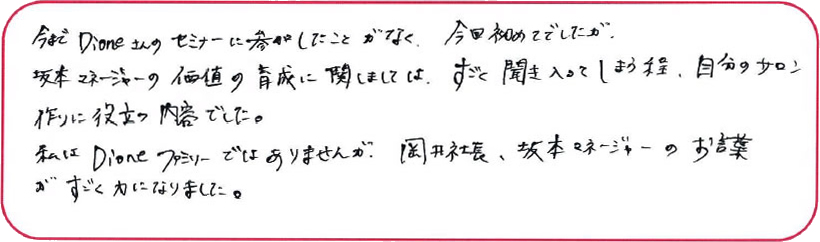 今まで Dioneさんの セミナーに参加したこと がなく、 今回初めてでしたが、
坂本マネージャーの 価値の育成に関しましては、すごく聞き入ってしまう程、自分のサロン
作りに役立つ 内容でした。
私は Dione ファミリーではありませんが、 岡井社長、坂本マネージャーの お言葉
が すごく力になりました。